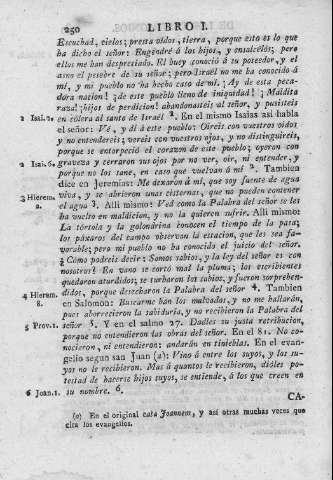 250 LIBRO I.
Escuchad, cielos; presta oidos, tierra, porque esto es lo que
ha dicho el señor: Engendré á los hijos, y ensalcélos; pero
ellos me han despreciado. El buey conoció á su poseedor, y el
asno el pesebre de su señor; pero Israél no me ha conocido á
mí, y mi pueblo no ha hecho caso de mí. ¡Ay de esta peca-
dora nacion! ¡de este pueblo lleno de iniquidad! ¡Maldita
raza! ¡hijos de perdicion! abandonasteis al señor, y pusisteis
2 Isai.1. en cólera al santo de Israél 2. En el mismo Isaías asi habla
el señor: Vé, y di á este pueblo: Oireis con vuestros oidos
y no entendereis; vereis con vuestros ojos, y no distinguireis,
porque se entorpeció el corazon de este pueblo; oyeron con
2 Isai.6. graveza y cerraron sus ojos por no ver, oir, ni entender, y
porque no los sane, en caso que vuelvan á mí 2. Tambien
dice en Jeremías: Me dexaron á mí, que soy fuente de agua
3 Hierem. viva, y se abrieron unas cisternas, que no pueden contener
2. el agua 3. Alli mismo: Ved como la Palabra del señor se les
ha vuelto en maldicion, y no la quieren sufrir. Alli mismo:
La tórtola y la golondrina conocen el tiempo de la pasa;
los páxaros del campo observan la estacion, que les sea fa-
vorable; pero mi pueblo no ha conocido el juicio del señor.
¿Cómo podreis decir: Somos sabios, y la ley del señor es con
nosotros? En vano se cortó mal la pluma; los escribientes
quedaron aturdidos; se turbaron los sabios, y fueron sorprehen-
4 Hierem. didos, porque desecharon la Palabra del señor 4. Tambien
8. en Salomon: Buscarme han los malvados, y no me hallarán,
pues aborrecieron la sabiduría, y no recibieron la Palabra del
5 Prov.1. señor 5. Y en el salmo 27. Dadles su justa retribucion,
porque no entendieron las obras del señor. En el 81. No co-
nocieron, ni entendieron: andarán en tinieblas. En el evan-
gelio segun san Juan (a): Vino á entre los suyos, y los su-
yos no le recibieron. Mas á quantos le recibieron, dióles po-
testad de hacerse hijos suyos, se entiende, á los que creen en
6 Joan.1. su nombre. 6.
CA-
(a) En el original cata Joannem, y así otras muchas veces que
cita los evangelios.